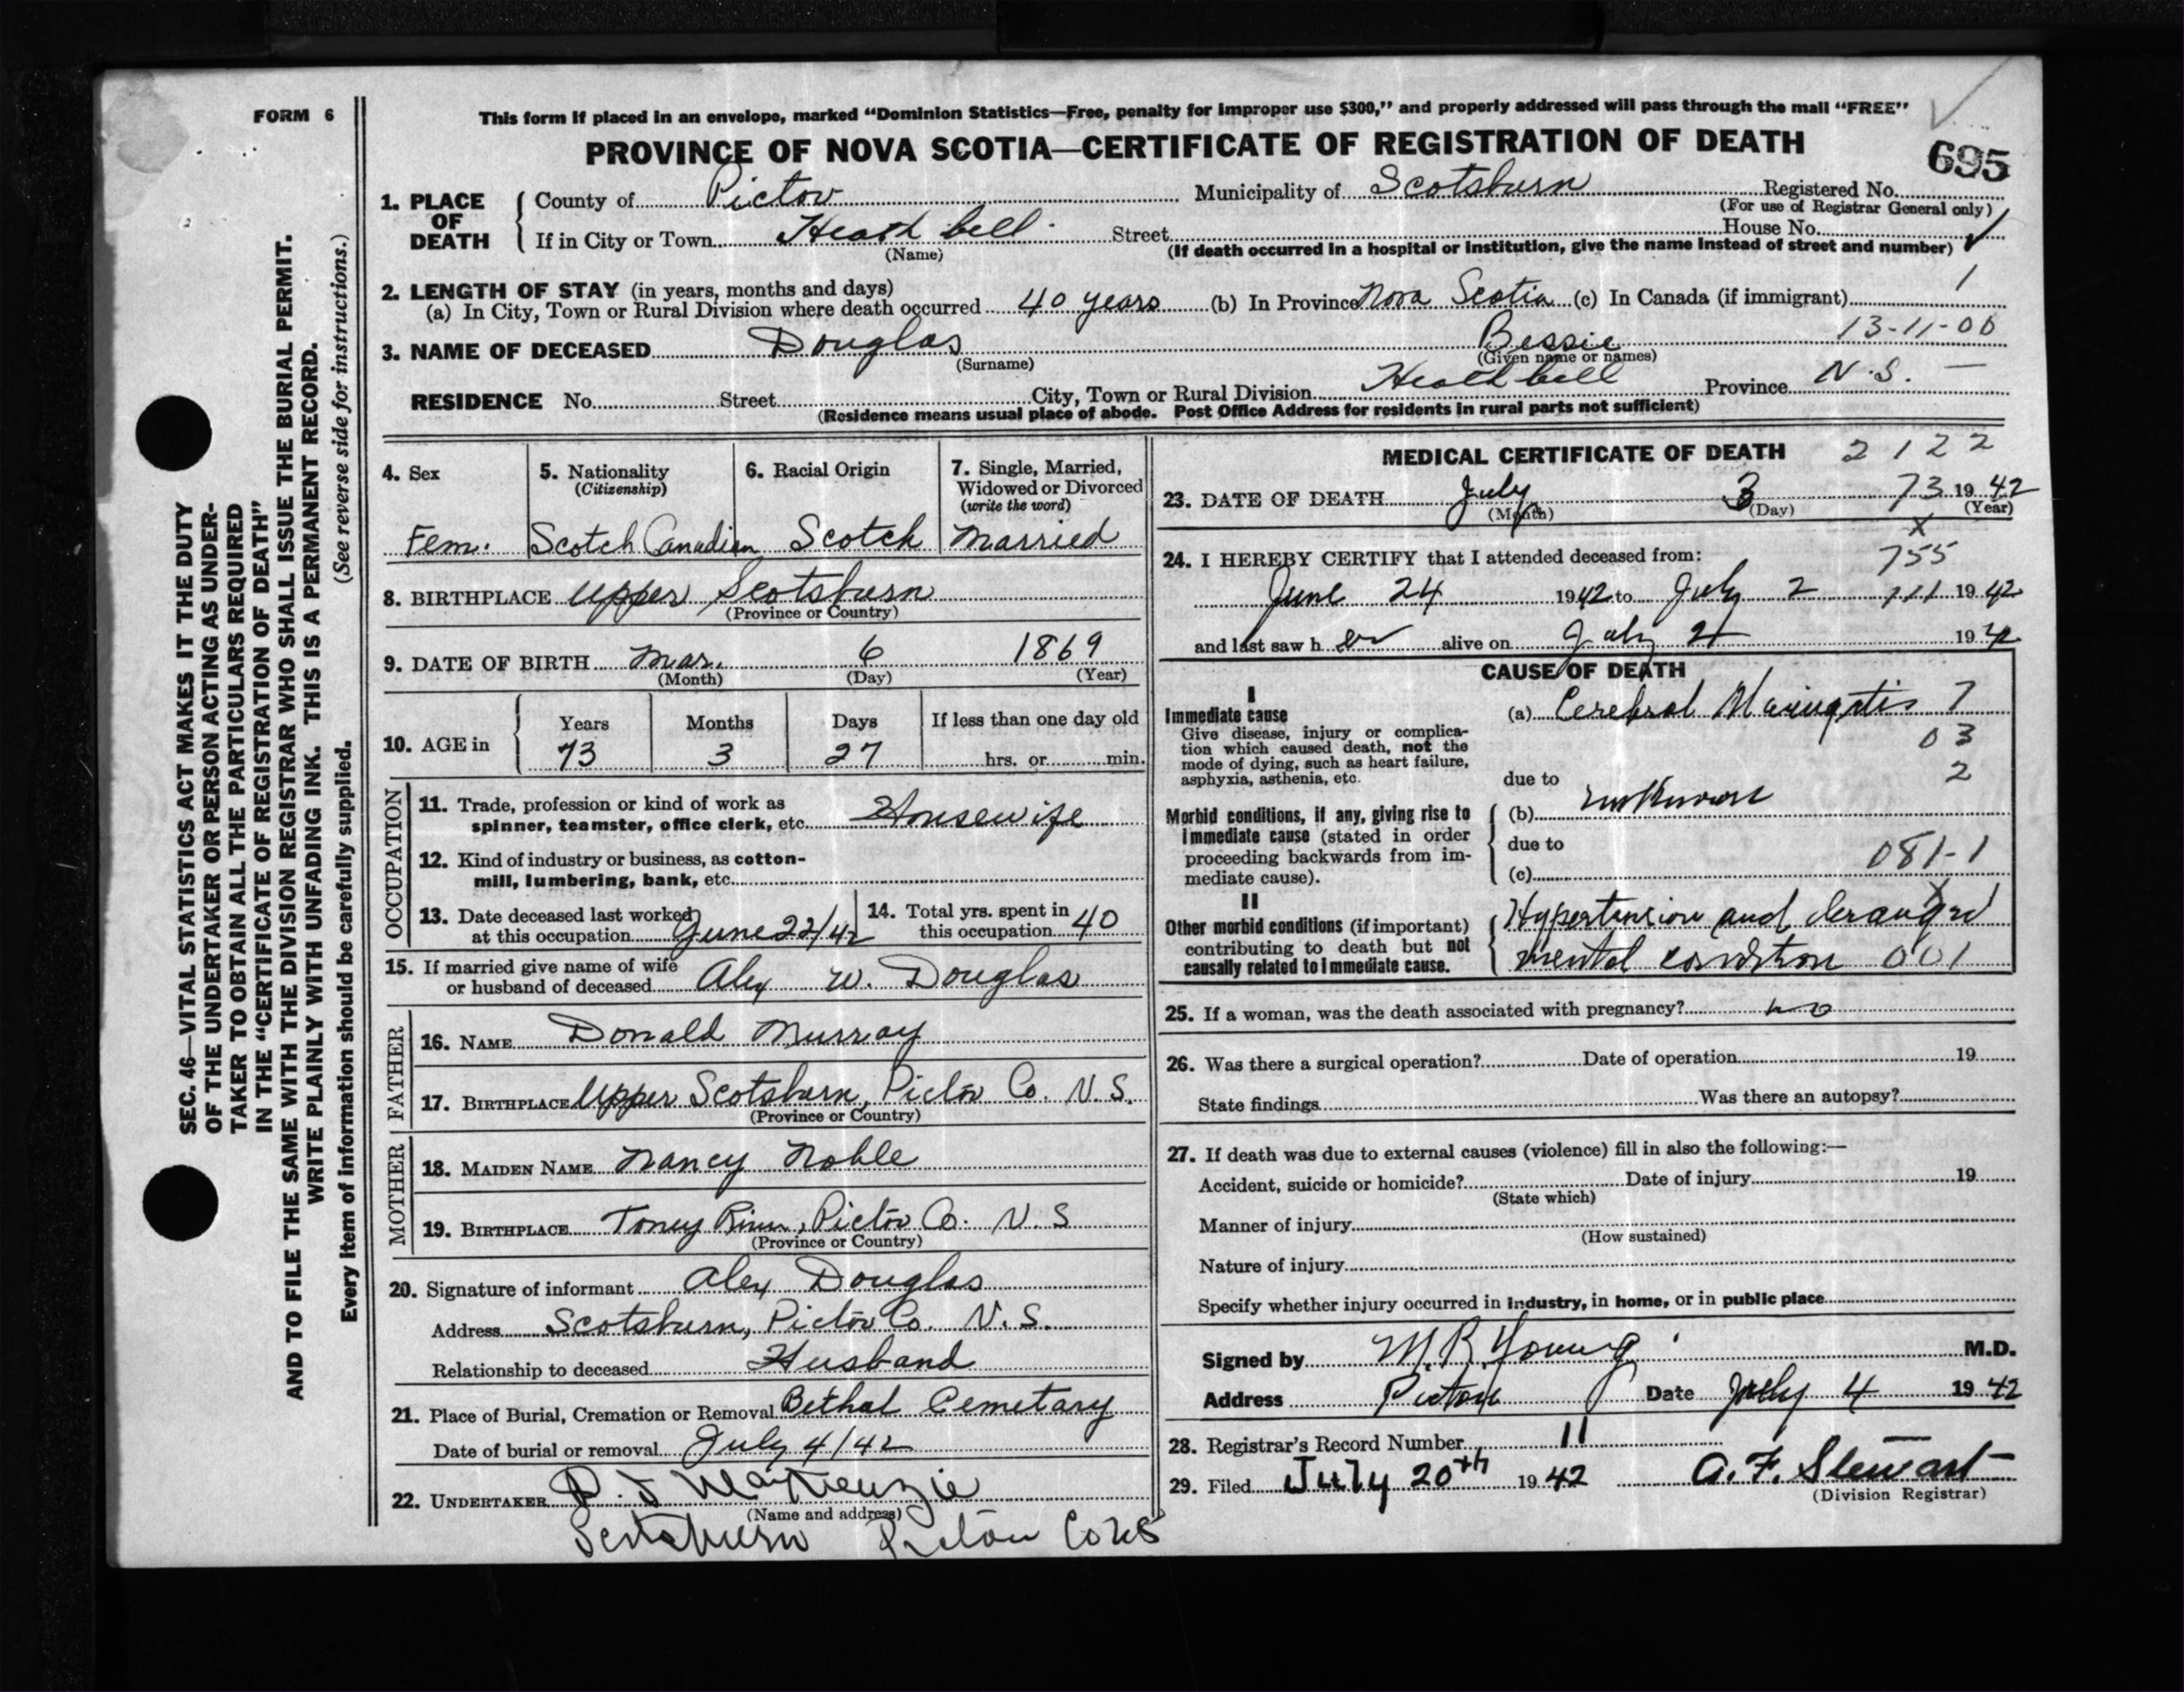 FORM 6
This form if placed in an envelope, marked “Dominion Statistics—Free, penalty for improper use $300,” and properly addressed will pass through the mail “FREE”
PROVINCE OF NOVA SCOTIA—CERTIFICATE OF REGISTRATION OF DEATH
695
1. PLACE OF DEATH County of Pictou Municipality of Scotsburn Registered No.
(For use of Registrar General only)
If in City or Town Heath bell Street House No.
(Name) (If death occurred in a hospital or institution, give the name instead of street and number)
2. LENGTH OF STAY (in years, months and days) 1
(a) In City, Town or Rural Division where death occurred 40 years (b) In Province Nova Scotia (c) In Canada (if immigrant)
13-11-00
3. NAME OF DECEASED Douglas Bessie
(Surname) (Given name or names)
RESIDENCE No. Street City, Town or Rural Division Heath bell Province N.S. —
(Residence means usual place of abode. Post Office Address for residents in rural parts not sufficient)
SEC. 46—VITAL STATISTICS ACT MAKES IT THE DUTY
OF THE UNDERTAKER OR PERSON ACTING AS UNDER-
TAKER TO OBTAIN ALL THE PARTICULARS REQUIRED
IN THE “CERTIFICATE OF REGISTRATION OF DEATH”
AND TO FILE THE SAME WITH THE DIVISION REGISTRAR WHO SHALL ISSUE THE BURIAL PERMIT.
WRITE PLAINLY WITH UNFADING INK. THIS IS A PERMANENT RECORD.
Every item of information should be carefully supplied. (See reverse side for instructions.)
4. Sex 5. Nationality 6. Racial Origin 7. Single, Married,
(Citizenship) Widowed or Divorced
(write the word)
Fem. Scotch Canadian Scotch Married
8. BIRTHPLACE Upper Scotsburn
(Province or Country)
9. DATE OF BIRTH Mar. 6 1869
(Month) (Day) (Year)
Years Months Days If less than one day old
10. AGE in 73 3 27 hrs. or min.
OCCUPATION
11. Trade, profession or kind of work as
spinner, teamster, office clerk, etc. Housewife
12. Kind of industry or business, as cotton-
mill, lumbering, bank, etc.
13. Date deceased last worked 14. Total yrs. spent in
at this occupation June 22/42 this occupation 40
15. If married give name of wife
or husband of deceased Alex W. Douglas
FATHER
16. NAME Donald Murray
17. BIRTHPLACE Upper Scotsburn, Pictou Co. N.S.
(Province or Country)
MOTHER
18. MAIDEN NAME Nancy Noble
19. BIRTHPLACE Toney River, Pictou Co. N.S
(Province or Country)
20. Signature of informant Alex Douglas
Address Scotsburn, Pictou Co. N.S.
Relationship to deceased Husband
21. Place of Burial, Cremation or Removal Bethal Cemetary
Date of burial or removal July 4/42
22. UNDERTAKER D. J MacKenzie
(Name and address)
Scotsburn Pictou Co NS
MEDICAL CERTIFICATE OF DEATH 2122
23. DATE OF DEATH July 3 73 1942
(Month) (Day) (Year)
x
24. I HEREBY CERTIFY that I attended deceased from: 755
June 24 1942 to July 2 111 1942
and last saw her alive on July 2 1942
CAUSE OF DEATH
I
Immediate cause (a) Cerebral Maningitis 7
Give disease, injury or complica-
tion which caused death, not the 03
mode of dying, such as heart failure,
asphyxia, asthenia, etc. due to 2
Morbid conditions, if any, giving rise to (b) unknown
immediate cause (stated in order
proceeding backwards from im- due to 081-1
mediate cause). (c)
II
Other morbid conditions (if important) Hypertension and deranged
contributing to death but not
causally related to immediate cause. mental condition 001
25. If a woman, was the death associated with pregnancy? no
26. Was there a surgical operation? Date of operation 19
State findings Was there an autopsy?
27. If death was due to external causes (violence) fill in also the following:—
Accident, suicide or homicide? Date of injury 19
(State which)
Manner of injury
(How sustained)
Nature of injury
Specify whether injury occurred in industry, in home, or in public place
Signed by M.R. Young M.D.
Address Pictou Date July 4 1942
28. Registrar's Record Number 11
29. Filed July 20th 1942 A. F. Stewart
(Division Registrar)